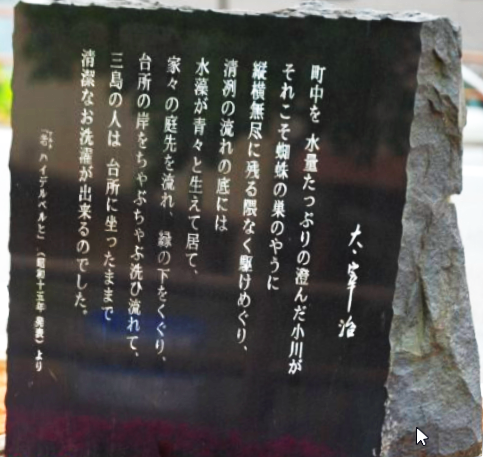 太宰治
町中を 水量たっぷりの澄んだ小川が
それこそ蜘蛛の巣のやうに
縦横無尽に残る隈なく駆けめぐり、
清冽の流れの底には
水藻が青々と生えて居て、
家々の庭先を流れ、縁の下をくぐり、
台所の岸をちゃぶちゃぶ洗ひ流れて、
三島の人は 台所に坐ったままで
清潔なお洗濯が出来るのでした。
「老ハイデルベルヒ」(昭和十五年発表)より